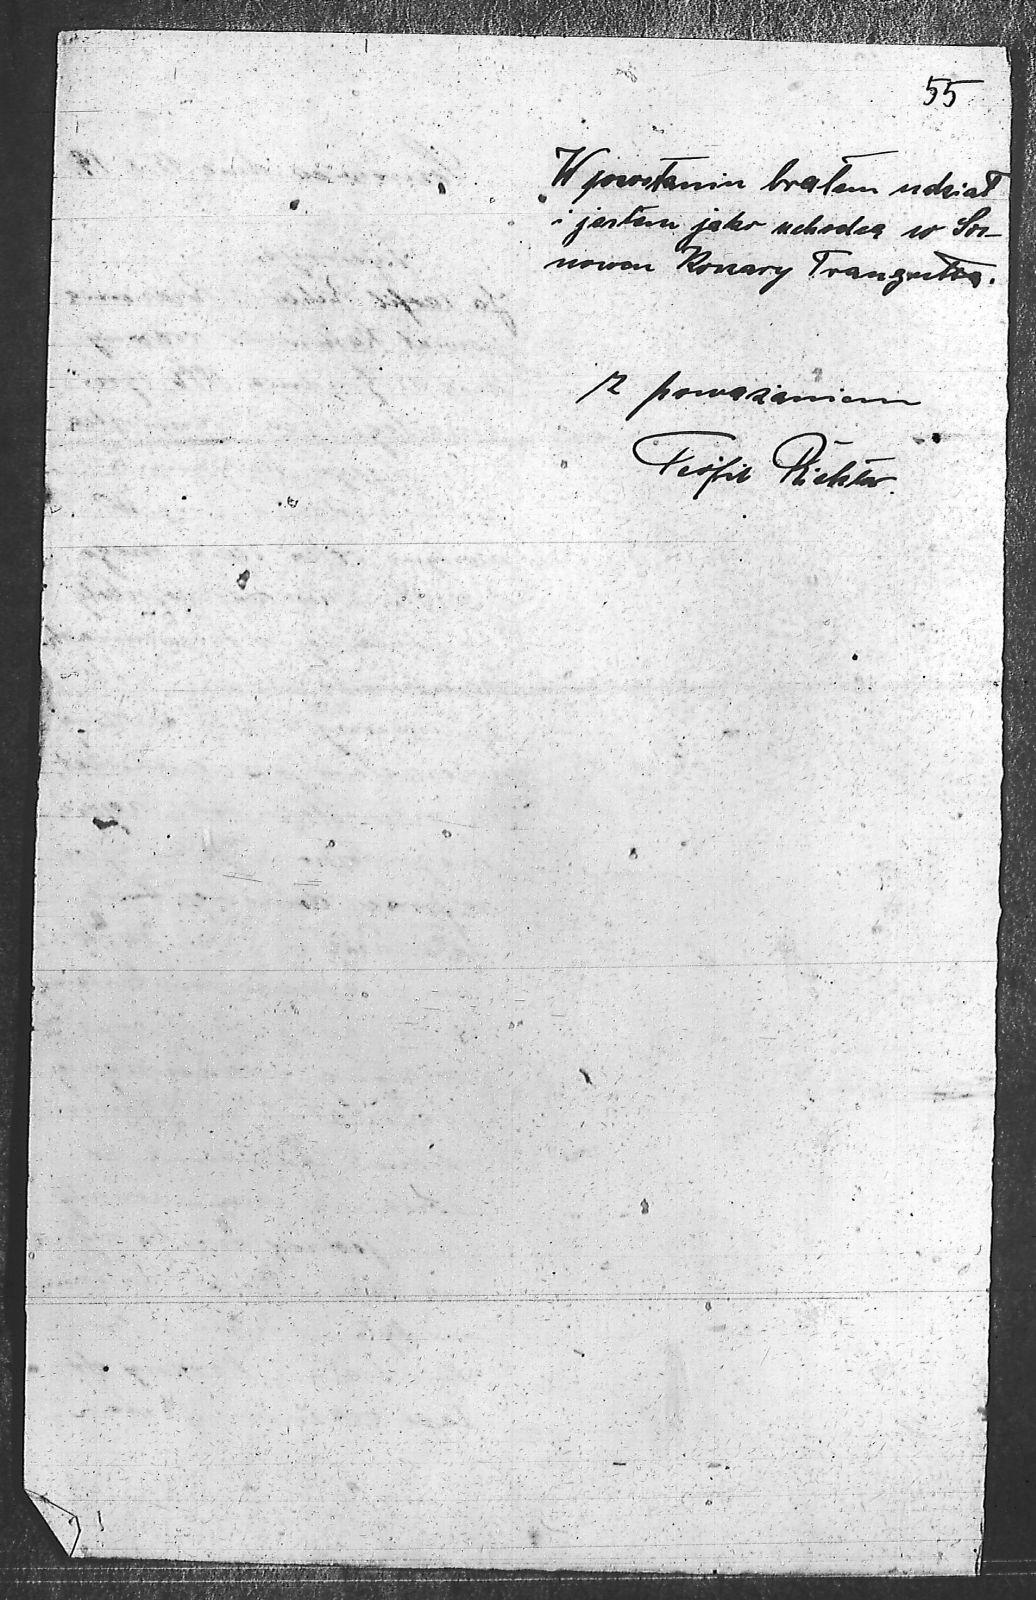 55
W powstaniu brałem udział
i jestem jako uchodca w Sos-
nowcu Koszary Traugutta.
Z poważaniem
Teofil Richter.